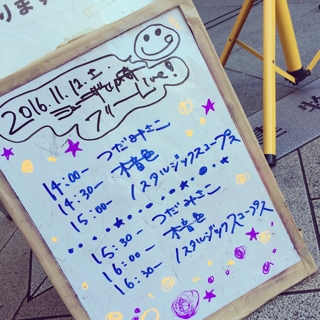 ります
2016.11.12.土.
フリーLive!
14:00〜 つだみさこ
14:30〜 木音色
15:00 ノスタルジックスコープス
15:30〜 つだみさこ
16:00〜 木音色
16:30〜 ノスタルジックスコープス